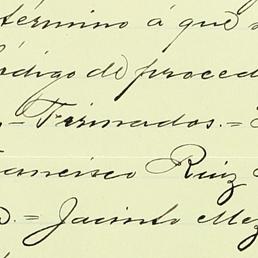 término á que
ódigo de proced
= Firmados. =
rancisco Ruiz
= Jacinto Mez